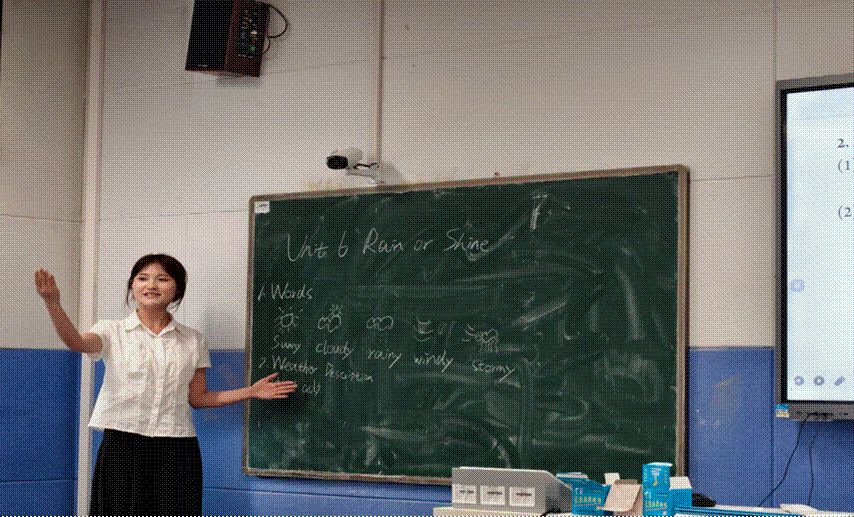 Unit 6 Rain or Shine
1. Words
Sunny cloudy rainy windy stormy
2. Weather Description
adj
2.
(1
(2